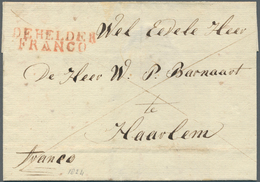 DE HELDER
FRANCO
Wel Edele Heer
De Heer W: P. Barnaart
te
Haarlem
franco